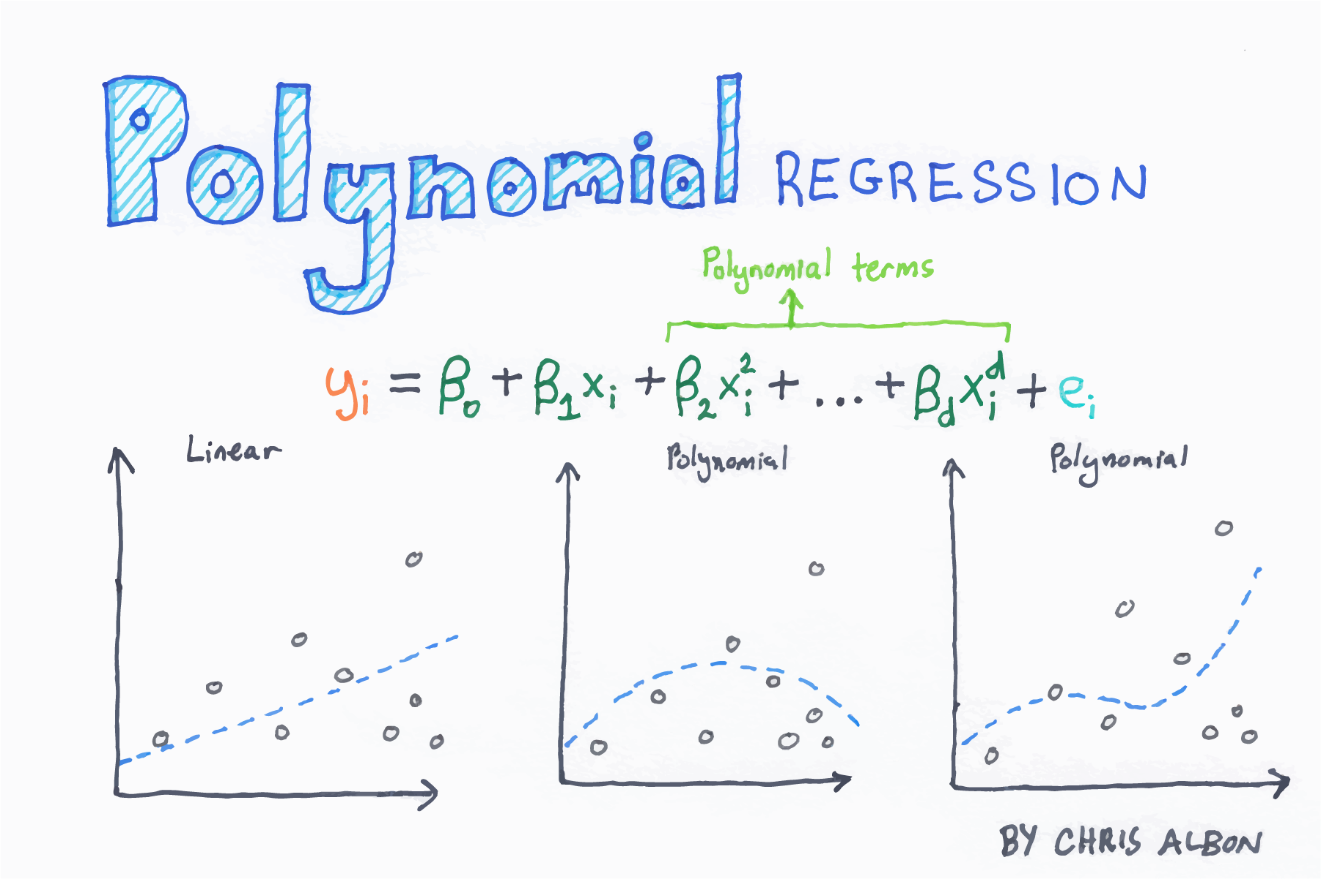 Polynomial REGRESSION
Polynomial terms
yᵢ = β₀ + β₁xᵢ + β₂xᵢ² + ... + β_d xᵢᵈ + eᵢ
Linear
Polynomial
Polynomial
BY CHRIS ALBON